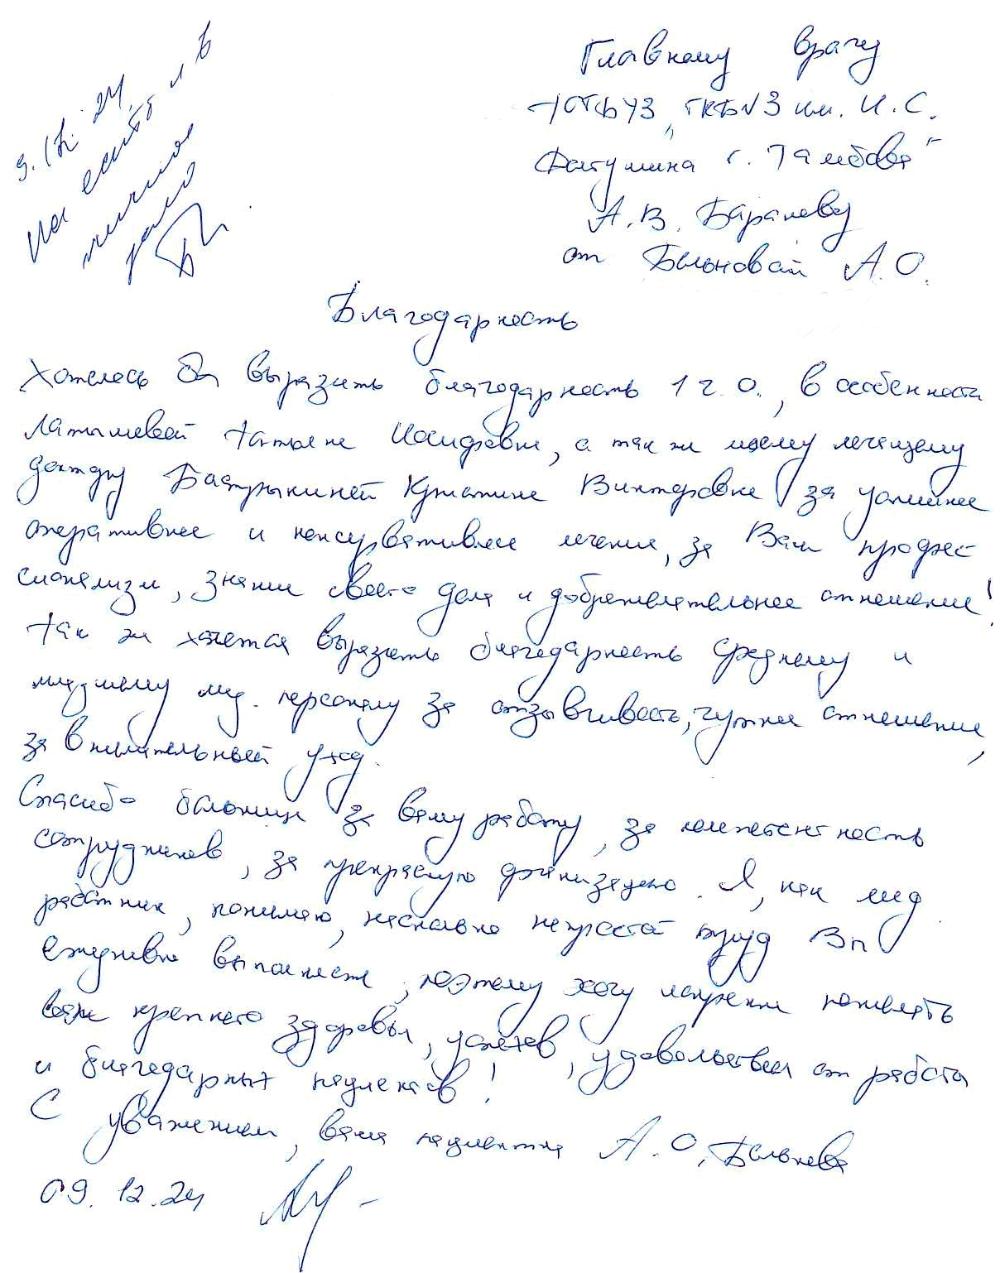 9.12.24
На сайт и в
личное
дело
Главному врачу
ТОГБУЗ "ГКБ №3 им. И.С.
Фатумина г. Тамбова"
А.В. Баранову
от Бельновой А.О.
Благодарность
Хотелось бы выразить благодарность 1 г.о., в особенности
Латышевой Татьяне Иосифовне, а так же моему лечащему
доктору Бастрыкиной Кристине Викторовне за успешное
оперативное и консервативное лечение, за Ваш професс
сионализм, знание своего дела и доброжелательное отношение!
Так же хочется выразить благодарность среднему и
младшему мед. персоналу за отзывчивость, чуткое отношение,
за внимательный уход.
Спасибо больнице за вашу работу, за компетентность
сотрудников, за прекрасную организацию. Я, как мед.
работник, понимаю, насколько непростой труд Вы
ежедневно выполняете, поэтому хочу искренне пожелать
вам крепкого здоровья, успехов, удовольствия от работы
и благодарных пациентов!
С уважением, ваша пациентка А.О. Бельнова
09.12.24